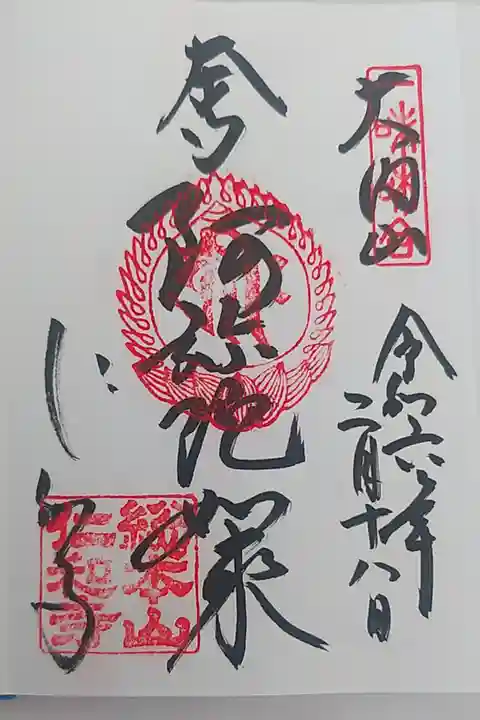 大内山
令和六年
二月十八日
奉
阿弥陀如来
仁和寺
總本山
仁和寺